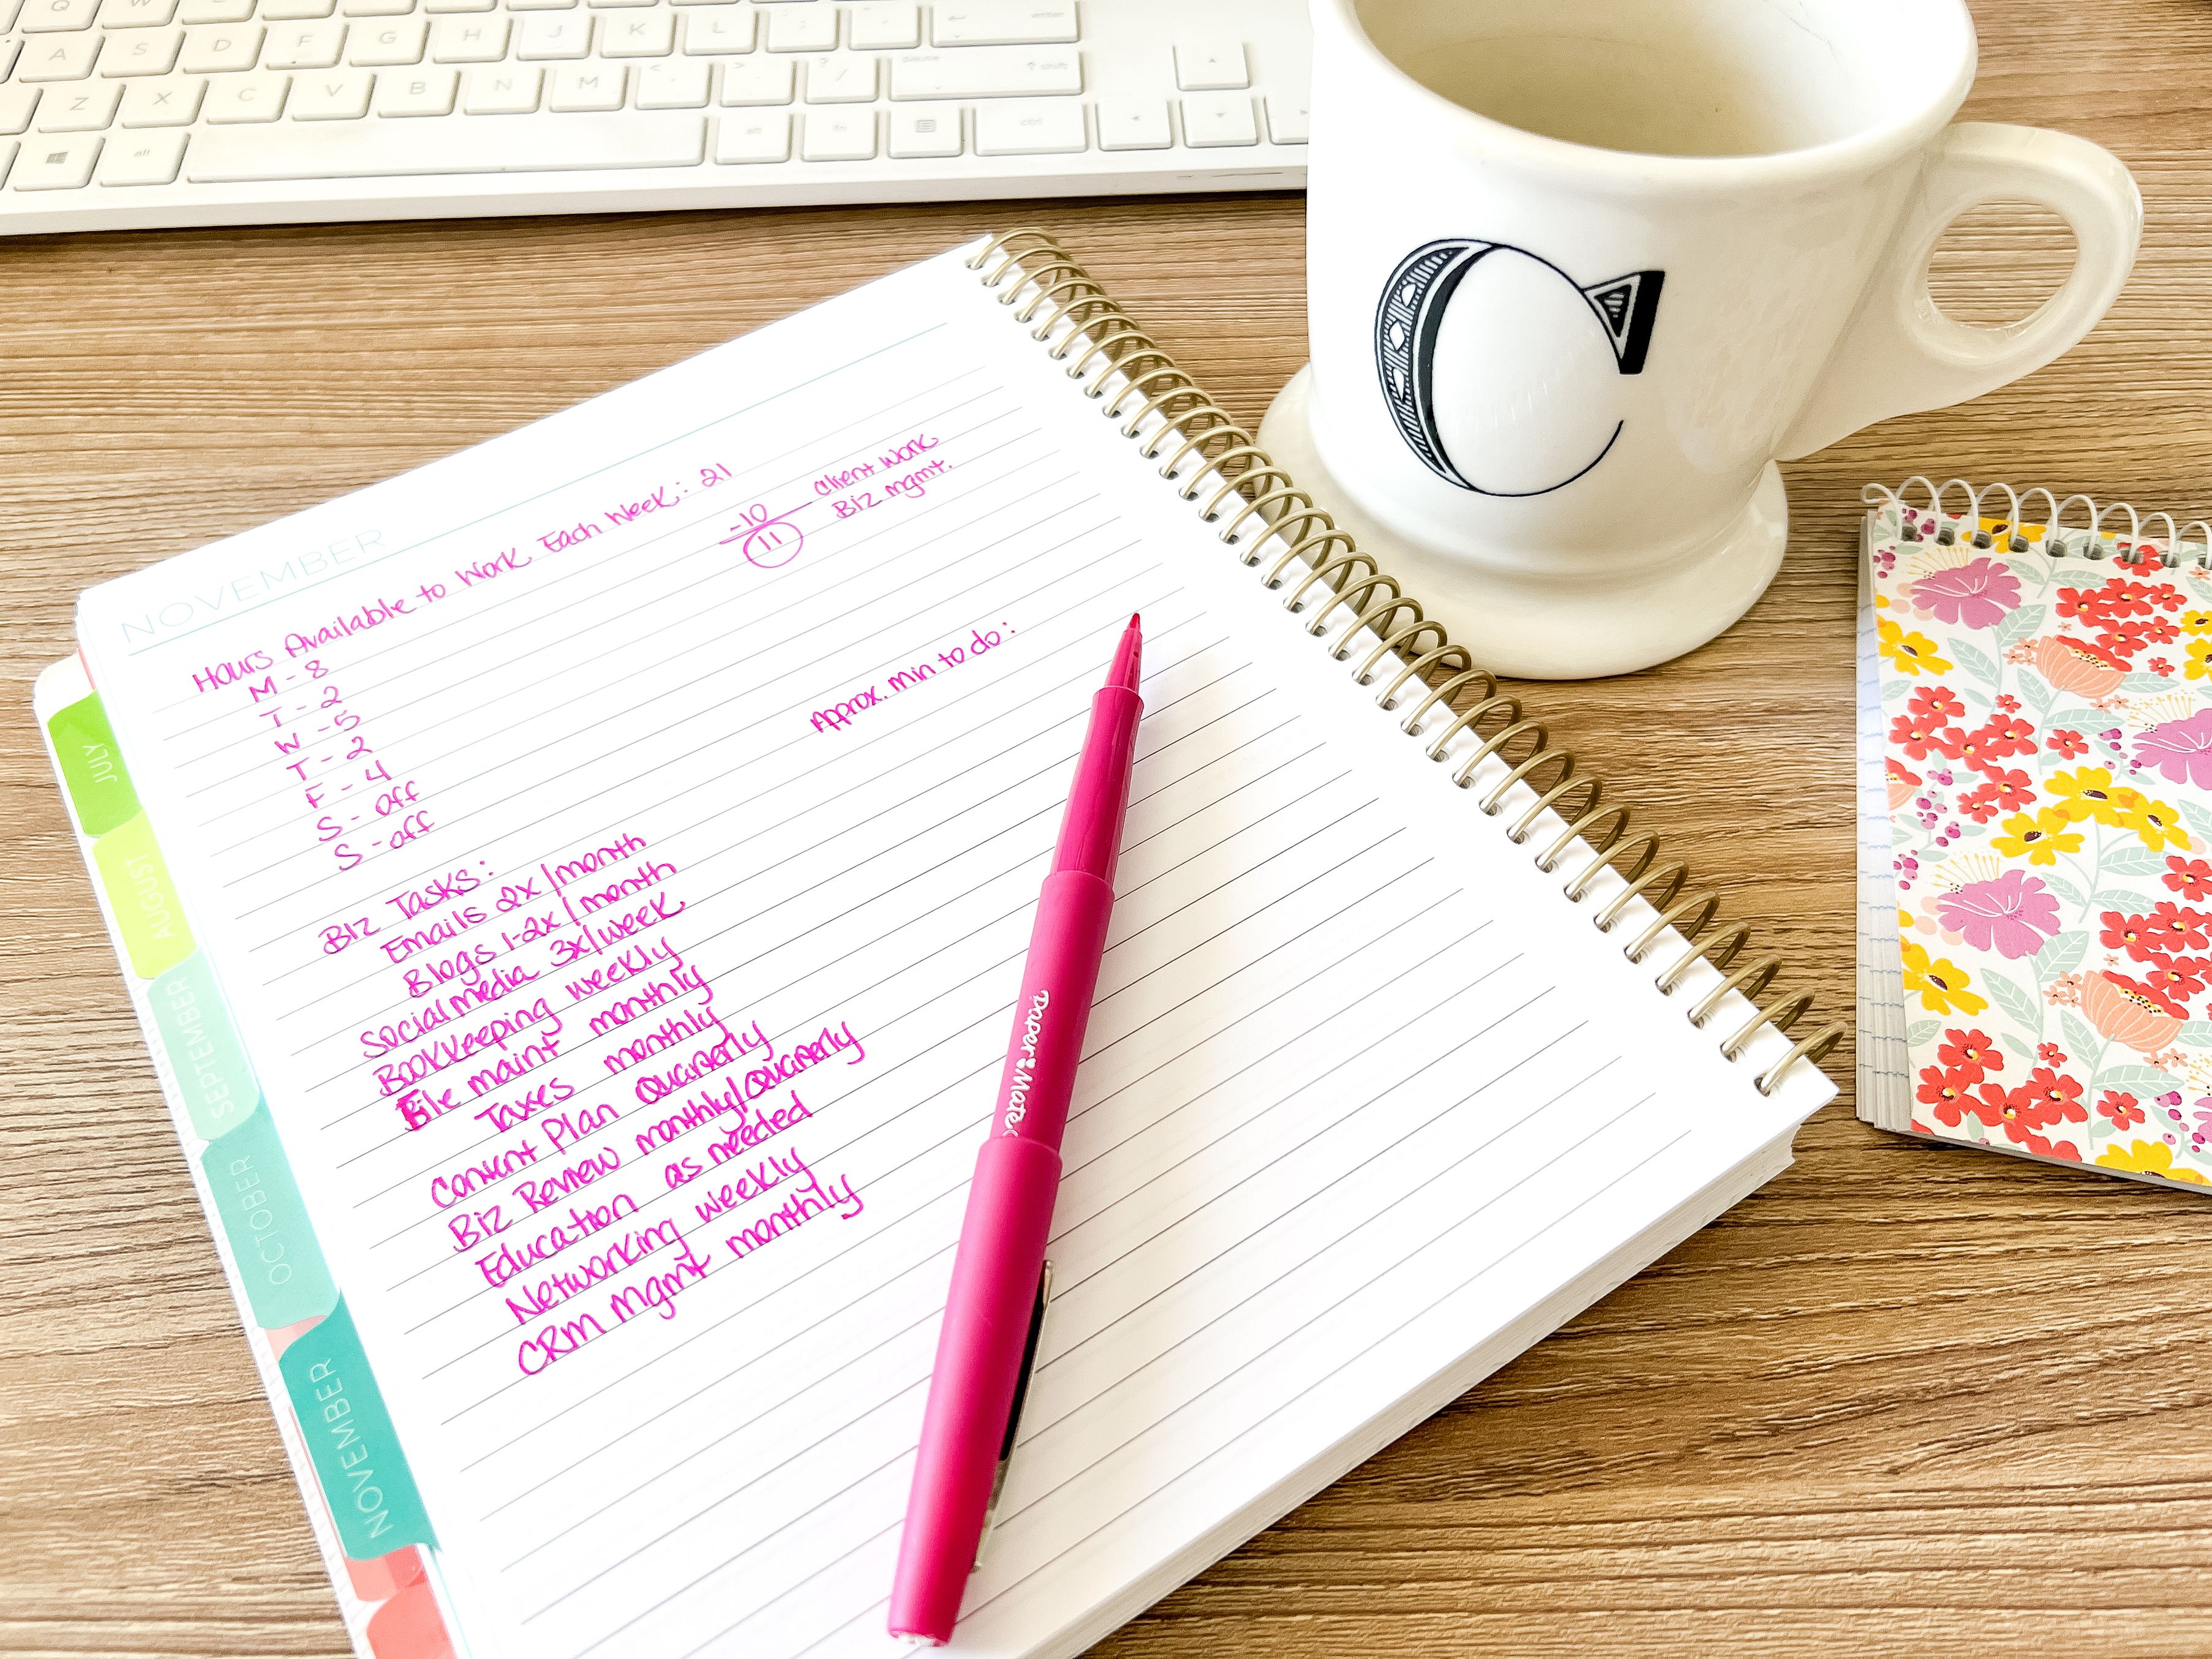 Q W E R T Y U I O P
A S D F G H J K L ; '
Z X C V B N M < , > . ? /
alt alt fn ctrl
pause shift
C
NOVEMBER
Hours Available to Work Each Week: 21
-10 Client Work
11 Biz mgmt.
M - 8
T - 2
W - 5
T - 2
F - 4
S - off
S - off
Approx. min to do:
Biz Tasks:
Emails 2x/month
Blogs 1-2x/month
Social media 3x/week
Bookkeeping weekly
File maint monthly
Taxes monthly
Content Plan Quarterly
Biz Review monthly/Quarterly
Education as needed
Networking weekly
CRM Mgmt monthly
JULY
AUGUST
SEPTEMBER
OCTOBER
NOVEMBER
Paper Mate